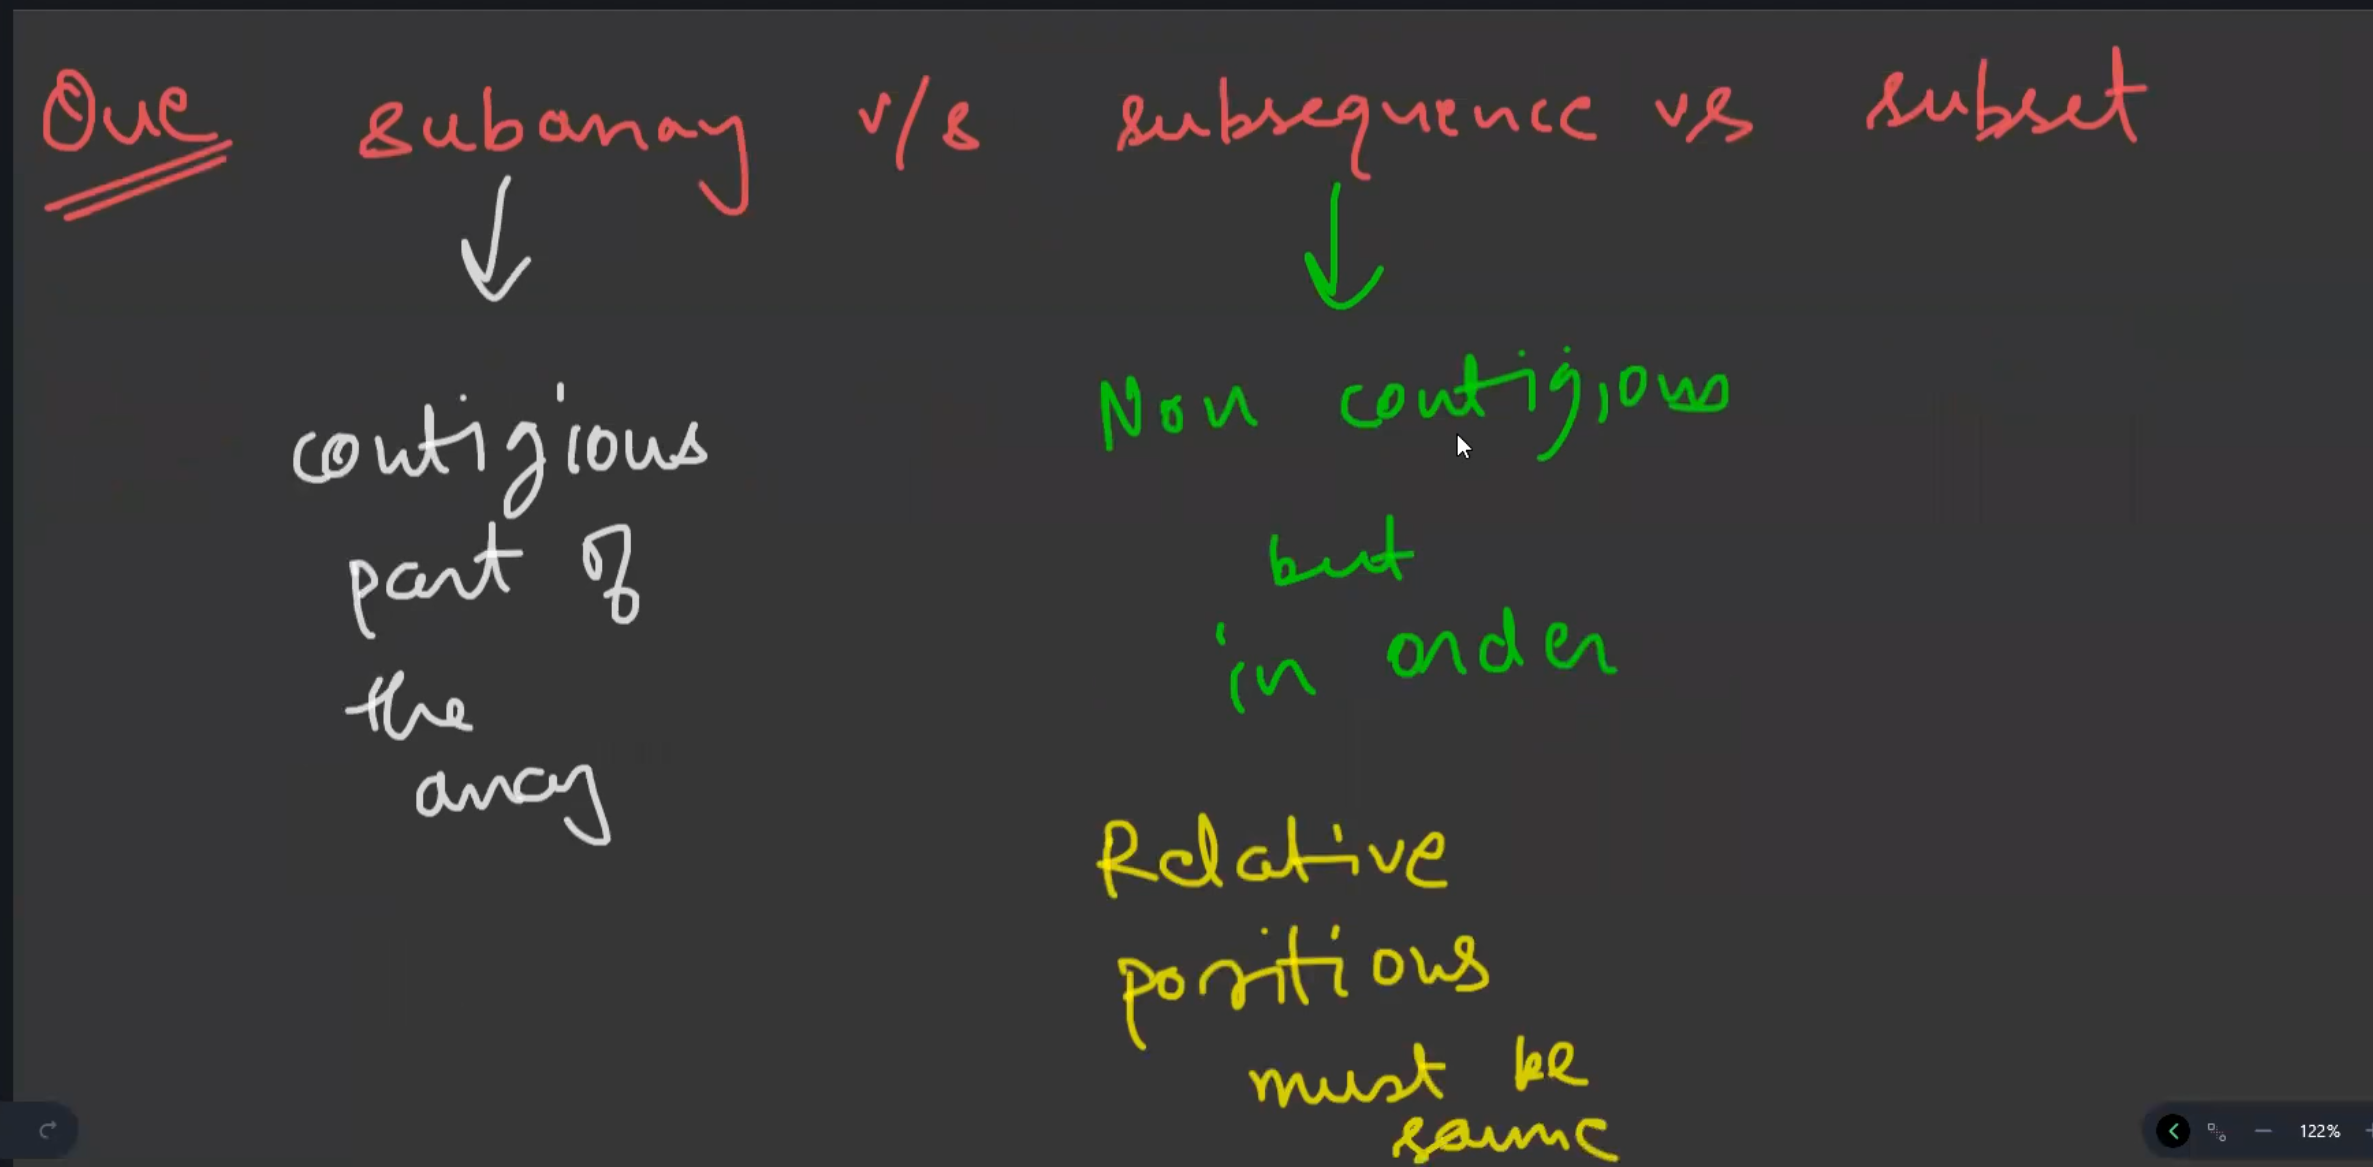 Que subarray v/s subsequence vs subset
contigious
part of
the
array
Non contigious
but
in order
Relative
positions
must be
same
122%